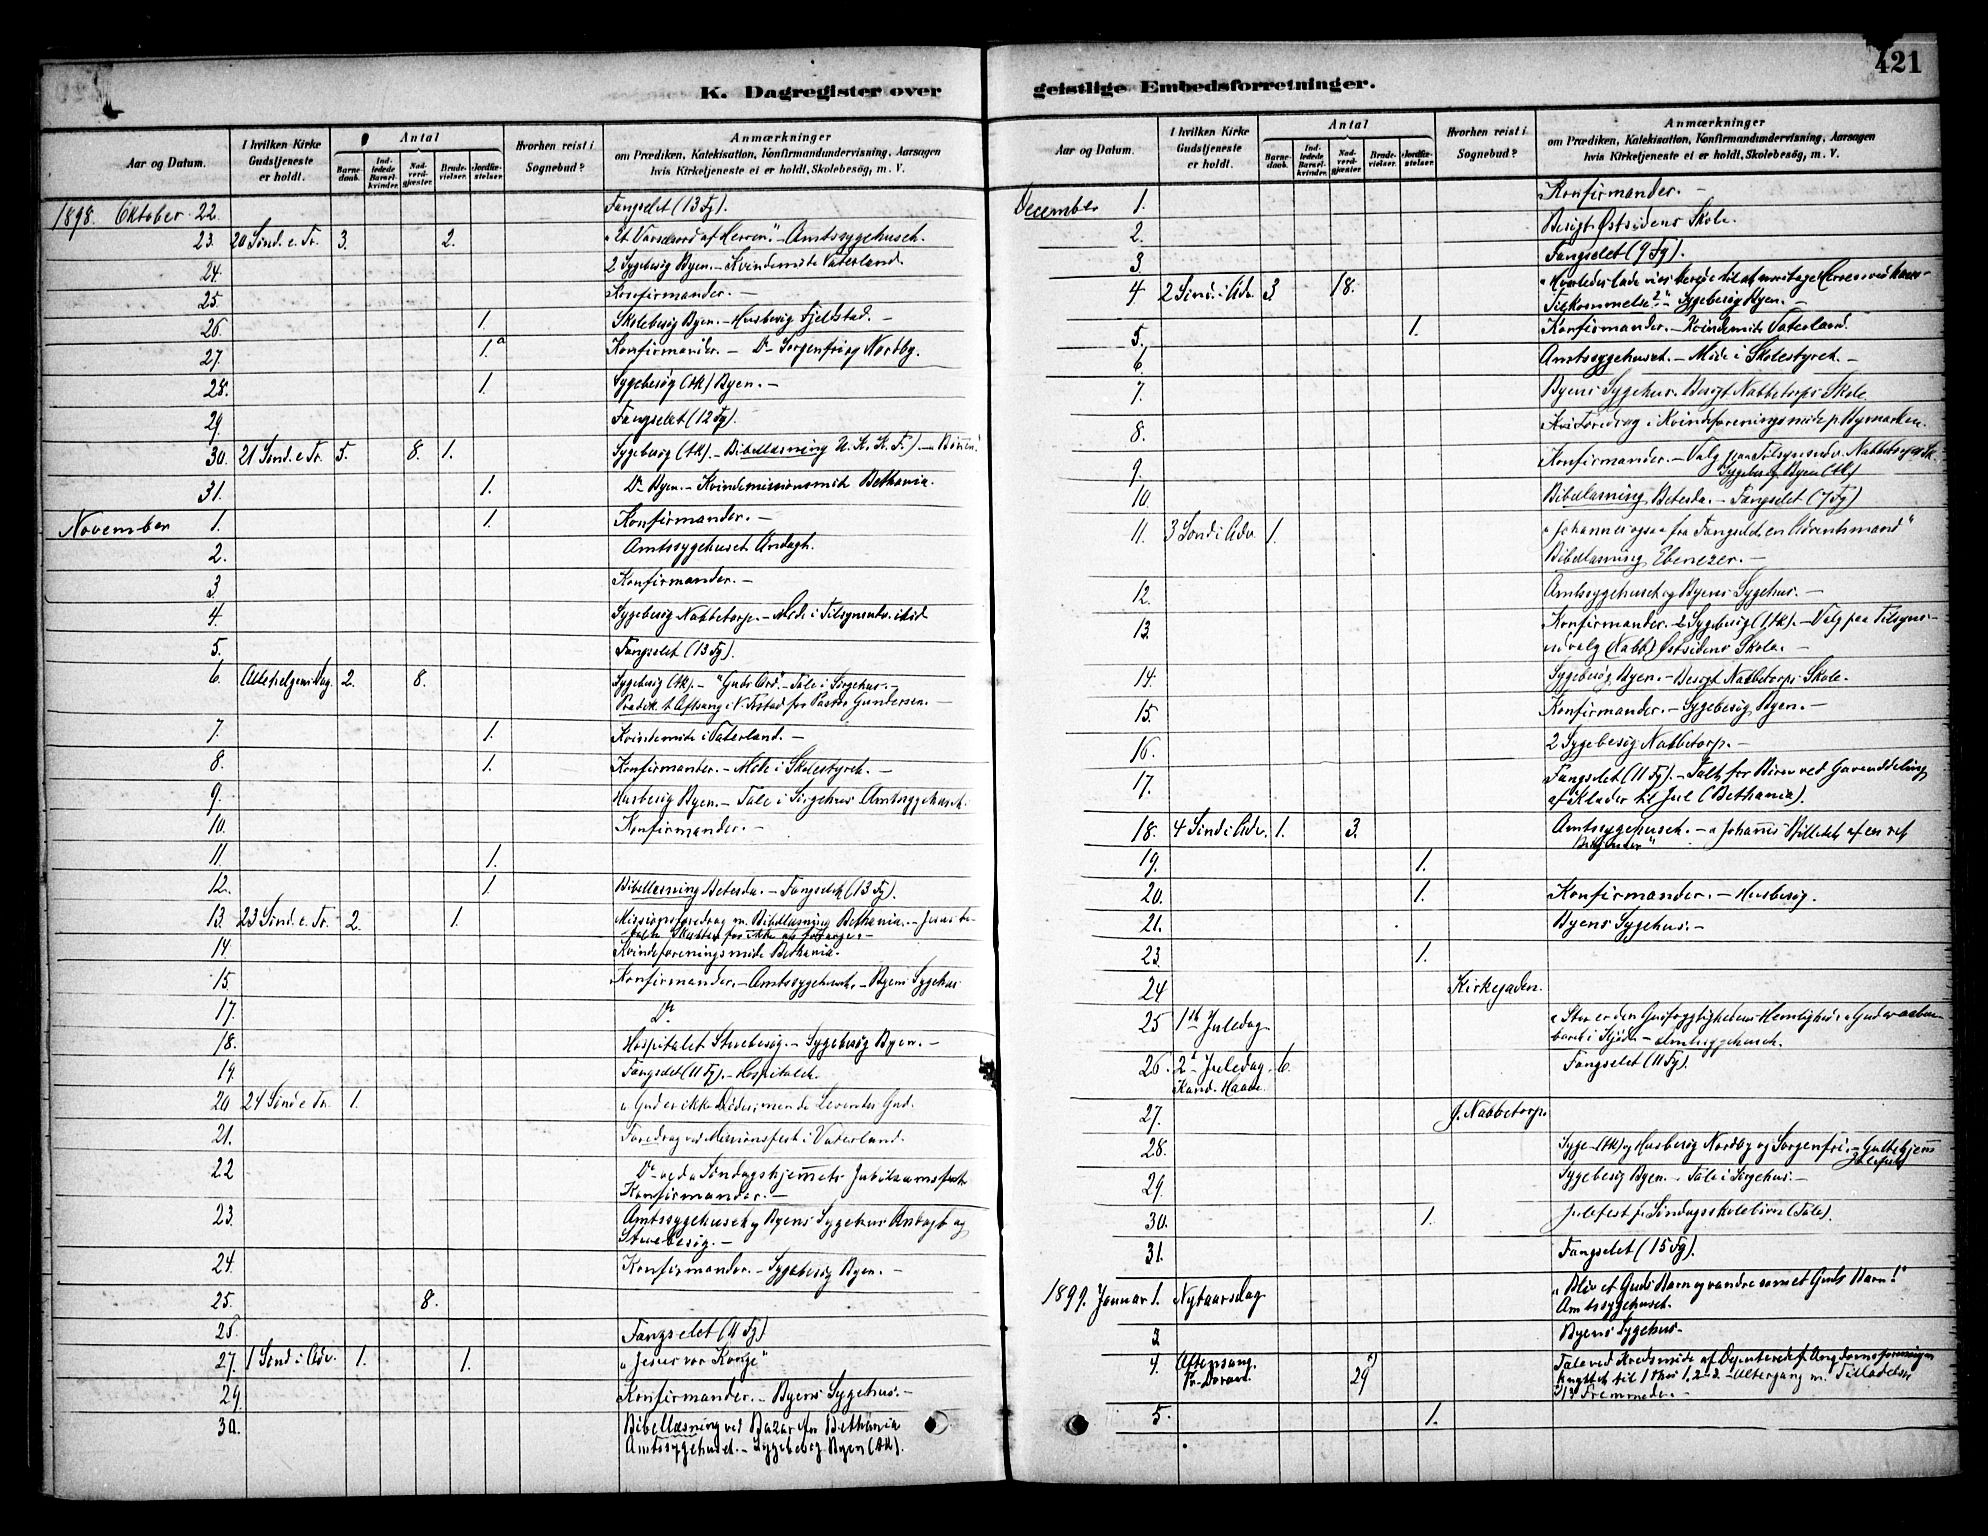 K. Dagregister over
Aar og Datum.
I hvilken Kirke Gudstjeneste er holdt.
Antal
Barnedaab.
Indledede Barselkvinder.
Nadverdgjæster.
Brudevielser.
Jordfæstelser.
Hvorhen reist i Sognebud?
Anmærkninger
om Prædiken, Katekisation, Konfirmandundervisning, Aarsagen
hvis Kirketjeneste ei er holdt, Skolebesøg, m. V.
1898. Oktober 22. Fængslet (13 Fg).
23. 20 Sønd. e. Tr. 3. 2. "Et Varselsord af Herren." – Amtssygehuset.
24. 2 Sygebesøg Byen. – Kvindemøte Vaterland.
25. Konfirmander. –
26. 1. Skolebesøg Byen. – Husbesøg Fjeldstad. –
27. 1. Konfirmander. – Do Sorgenfri og Nordby.
28. 1. Sygebesøg (Ak) Byen. –
29. Fængslet (12 Fg).
30. 21 Sønd. e. Tr. 5. 8. 1. Sygebesøg (Ak). – Bibellæsning U. K. K. F.) –
31. 1. Do Byen. – Kvindemissionsmøte Bethania.
November 1. 1. Konfirmander. –
2. Amtssygehuset Andagt.
3 Konfirmander. –
4. Sygebesøg Nabbetorp. – Møde i
5. Fængslet (13 Fg).
6. Allehelgensdag. 2. 8. Sygebesøg (Ak). – "Guds Ord". – Tale i Sørgehus. –
Prædik. t. Aftsang i V. Frstad for Pastor Gundersen. –
7. 1. Kvindemøte i Vaterland. –
8. 1. Konfirmander. – Møde i Skolestyret. –
9. Husbesøg Byen. – Tale i Sørgehus Amtssygehuset.
10. Konfirmander. –
11. 1.
12. 1. Bibellæsning Betesda. – Fængslet (13 Fg).
13. 23 Sønd. e. Tr. 2. 1. Missionsforedrag m. Bibellæsning Bethania. –
14 Kvindeforeningsmøde Bethania.
15. Konfirmander. – Amtssygehuset. – Byens Sygehus
17. Do
18. Hospitalet Stuebesøg. – Sygebesøg Byen. –
19. Fængslet (11 Fg). – Hospitalet.
20 24 Sønd e Tr. 1. "Gud er ikke Dødes, men de Levendes Gud.
21. Foredrag ved Missionsfest i Vaterland.
22 Do ved Søndagshjemmets Jubilæumsfest
Konfirmander. –
23. Amtssygehuset og Byens Sygehus Andagt og
Stuebesøg. –
24. Konfirmander. – Sygebesøg Byen. –
25. 8.
26. Fængslet (11 Fg)
27. 1 Sønd i Adv. 1. 1. "Jesus vor Konge"
29. Konfirmander. – Byens Sygehus. –
30. Bibellæsning ved Bazar i Bethania
Amtssygehuset. – Sygebesøg Byen (Ak).
geistlige Embedsforretninger.
421
Aar og Datum.
I hvilken Kirke Gudstjeneste er holdt.
Antal
Barnedaab.
Indledede Barselkvinder.
Nadverdgjæster.
Brudevielser.
Jordfæstelser.
Hvorhen reist i Sognebud?
Anmærkninger
om Prædiken, Katekisation, Konfirmandundervisning, Aarsagen
hvis Kirketjeneste ei er holdt, Skolebesøg, m. V.
December 1. Konfirmander. –
2. Besigt Østsidens Skole.
3. Fængslet (9 Fg).
4 2 Sønd. i Adv. 3 18. "Hvorledes lade vi os berede til at modtage Herren ved hans
Tilkommelse?" Sygebesøg Byen. –
5. 1. Konfirmander. – Kvindemøte Vaterland.
6. Amtssygehuset. – Møde i Skolestyret. –
7. Byens Sygehus. Besigt Nabbetorps Skole
8. Foredrag i Kvindeforeningsmøde p. Bymarken.
9. Konfirmander. – Valg paa Tilsynsudv. Nabbetorps Sk.
Sygebesøg Byen (Ak)
10. Bibellæsning Betesda. – Fængslet (7 Fg)
11. 3 Sønd i Adv. 1. "Johannes ogsaa fra Fængslet en Adventsmand"
Bibellæsning Ebenezer. –
12. Amtssygehuset og Byens Sygehus. –
13. Konfirmander. – 2 Sygebesøg (1 Ak). – Valg paa Tilsyns-
udvalg (Nabb) Østsidens Skole. –
14. Sygebesøg Byen. – Besigt Nabbetorps Skole.
15. Konfirmander. – Sygebesøg Byen. –
16. 2 Sygebesøg Nabbetorp. –
17. Fængslet (11 Fg). – Talt for Børn ved Gaveuddeling
af Klæder til Jul (Bethania).
18. 4 Sønd i Adv. 1. 3. Amtssygehuset. – "Johannes Billedet af en ret
19. 1.
20. 1. Konfirmander. – Husbesøg.
21. Byens Sygehus. –
23. 1.
24 Kirkegaden.
25 1ste Juledag. "Stor er den Gudfrygtigheds Hemlighed: Gud er aaben-
baret i Kjød. – Amtssygehuset.
26. 2den Juledag. 6. Fængslet (11 Fg).
Kand. Haave.
27. f. Nabbetorp.
28. Syge- (Ak) og Husbesøg Nordby og Sorgenfri. –
Julefest
29. Sygebesøg Byen. – Tale i Sørgehus. –
30. 1. Julefest f. Søndagsskolebørn (Tale).
31. Fængslet (15 Fg).
1899. Januar 1. Nytaarsdag "Bliv et Guds Barn og vandre som et Guds Barn!"
Amtssygehuset.
2 Byens Sygehus.
4. Aftensang. 29 Tale ved Kredsmøde af Ungdomsforeninger
– Altergang m. Tilladelse
Fremmede. –
5. 1.